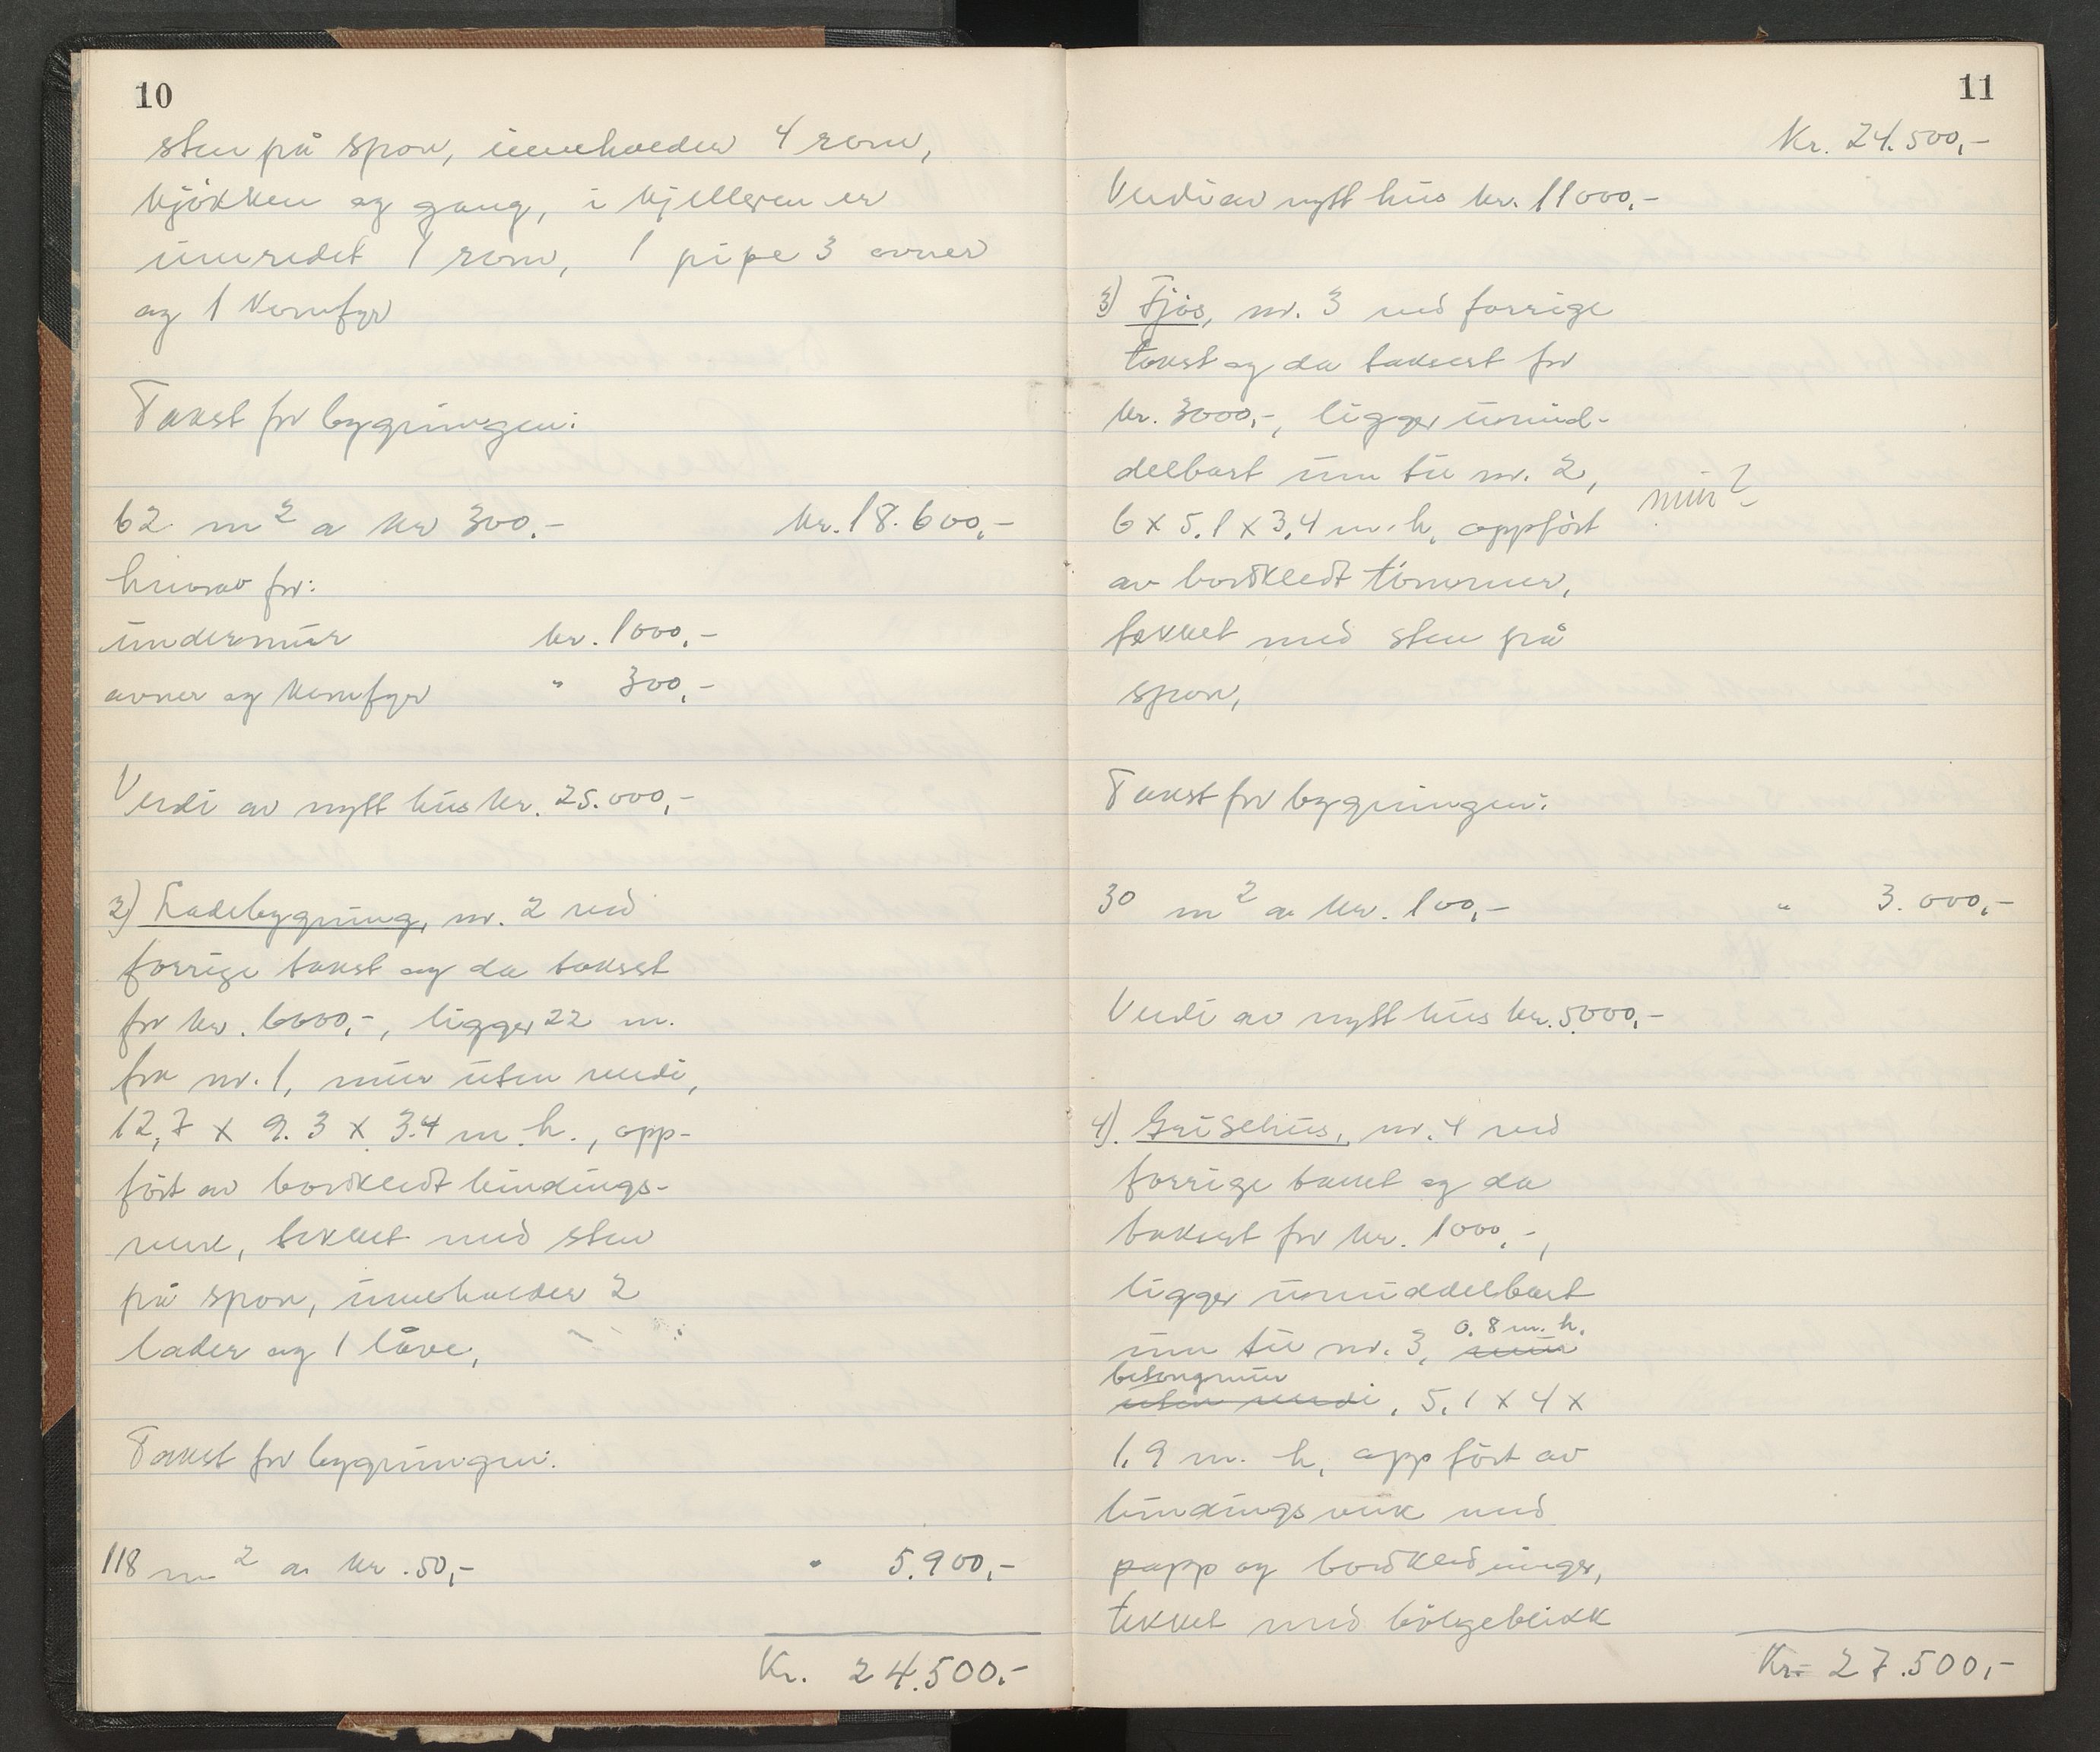 10
sten på spon, inneholder 4 rom,
kjökken og gang, i kjelleren er
innredet 1 rom, 1 pipe 3 ovner
og 1 komfyr
Takst for bygningen:
62 m2 a kr 300.- kr. 18.600,-
herav for:
undermur kr. 1000,-
ovner og komfyr " 300,-
Verdi av nytt hus kr. 25.000,-
2) Ladebygning, nr. 2 ved
forrige takst og da taksert
for kr. 6000,-, ligger 22 m.
fra nr. 1, mur uten verdi,
12,7 x 9.3 x 3.4 m. h., opp-
fört av bordkledt bindings-
verk, tekket med sten
på spon, inneholder 2
lader og 1 låve,
Takst for bygningen:
118 m2 a kr. 50,- " 5.900,-
Kr. 24.500,-
11
Kr. 24.500,-
Verdi av nytt hus kr. 11000,-
3) Fjös, nr. 3 ved forrige
takst og da taksert for
kr. 3000,-, ligger umid-
delbart inn til nr. 2,
mur?
6 x 5,1 x 3,4 m. h, oppfört
av bordkledt tömmer,
tekket med sten på
spon,
Takst for bygningen:
30 m2 a kr. 100,- " 3.000,-
Verdi av nytt hus kr. 5000,-
4). Grisehus, nr. 4 ved
forrige takst og da
taksert for kr. 1000,-,
ligger umiddelbart
0.8 m. h.
inn til nr. 3, mur
betongmur
uten verdi, 5,1 x 4 x
1,9 m. h, oppfört av
bindingsverk med
papp og bordkledninger,
tekket med bölgeblikk
Kr. 27.500,-